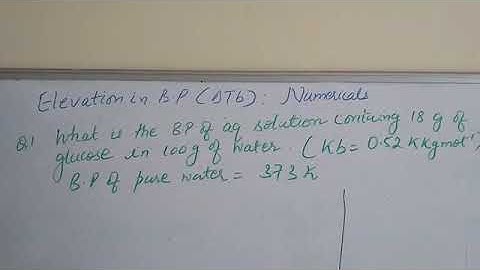 Elevation in B.P (ΔTb) : Numericals
Q1 What is the B.P of aq solution contiung 18 g of
glucose in 100g of water. (Kb = 0.52 K Kg mol⁻¹,
B.P of pure water = 373 K